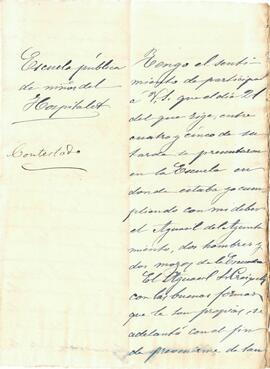 Escuela pública
de niños del
Hospitalet
Contestado
Tengo el senti-
miento de participar
á V. S. que el dia 21
del que rige, entre
cuatro y cinco de su
tarde se presentaron
en la Escuela en
donde estaba yo cum-
pliendo con mi deber
el Aguacil del Ayunta-
miento, dos hombres y
dos mozos de la Escuadra
El Aguacil
con las buenas formas
que le son propias, se
adelantó con el fin
de prevenirme de tan